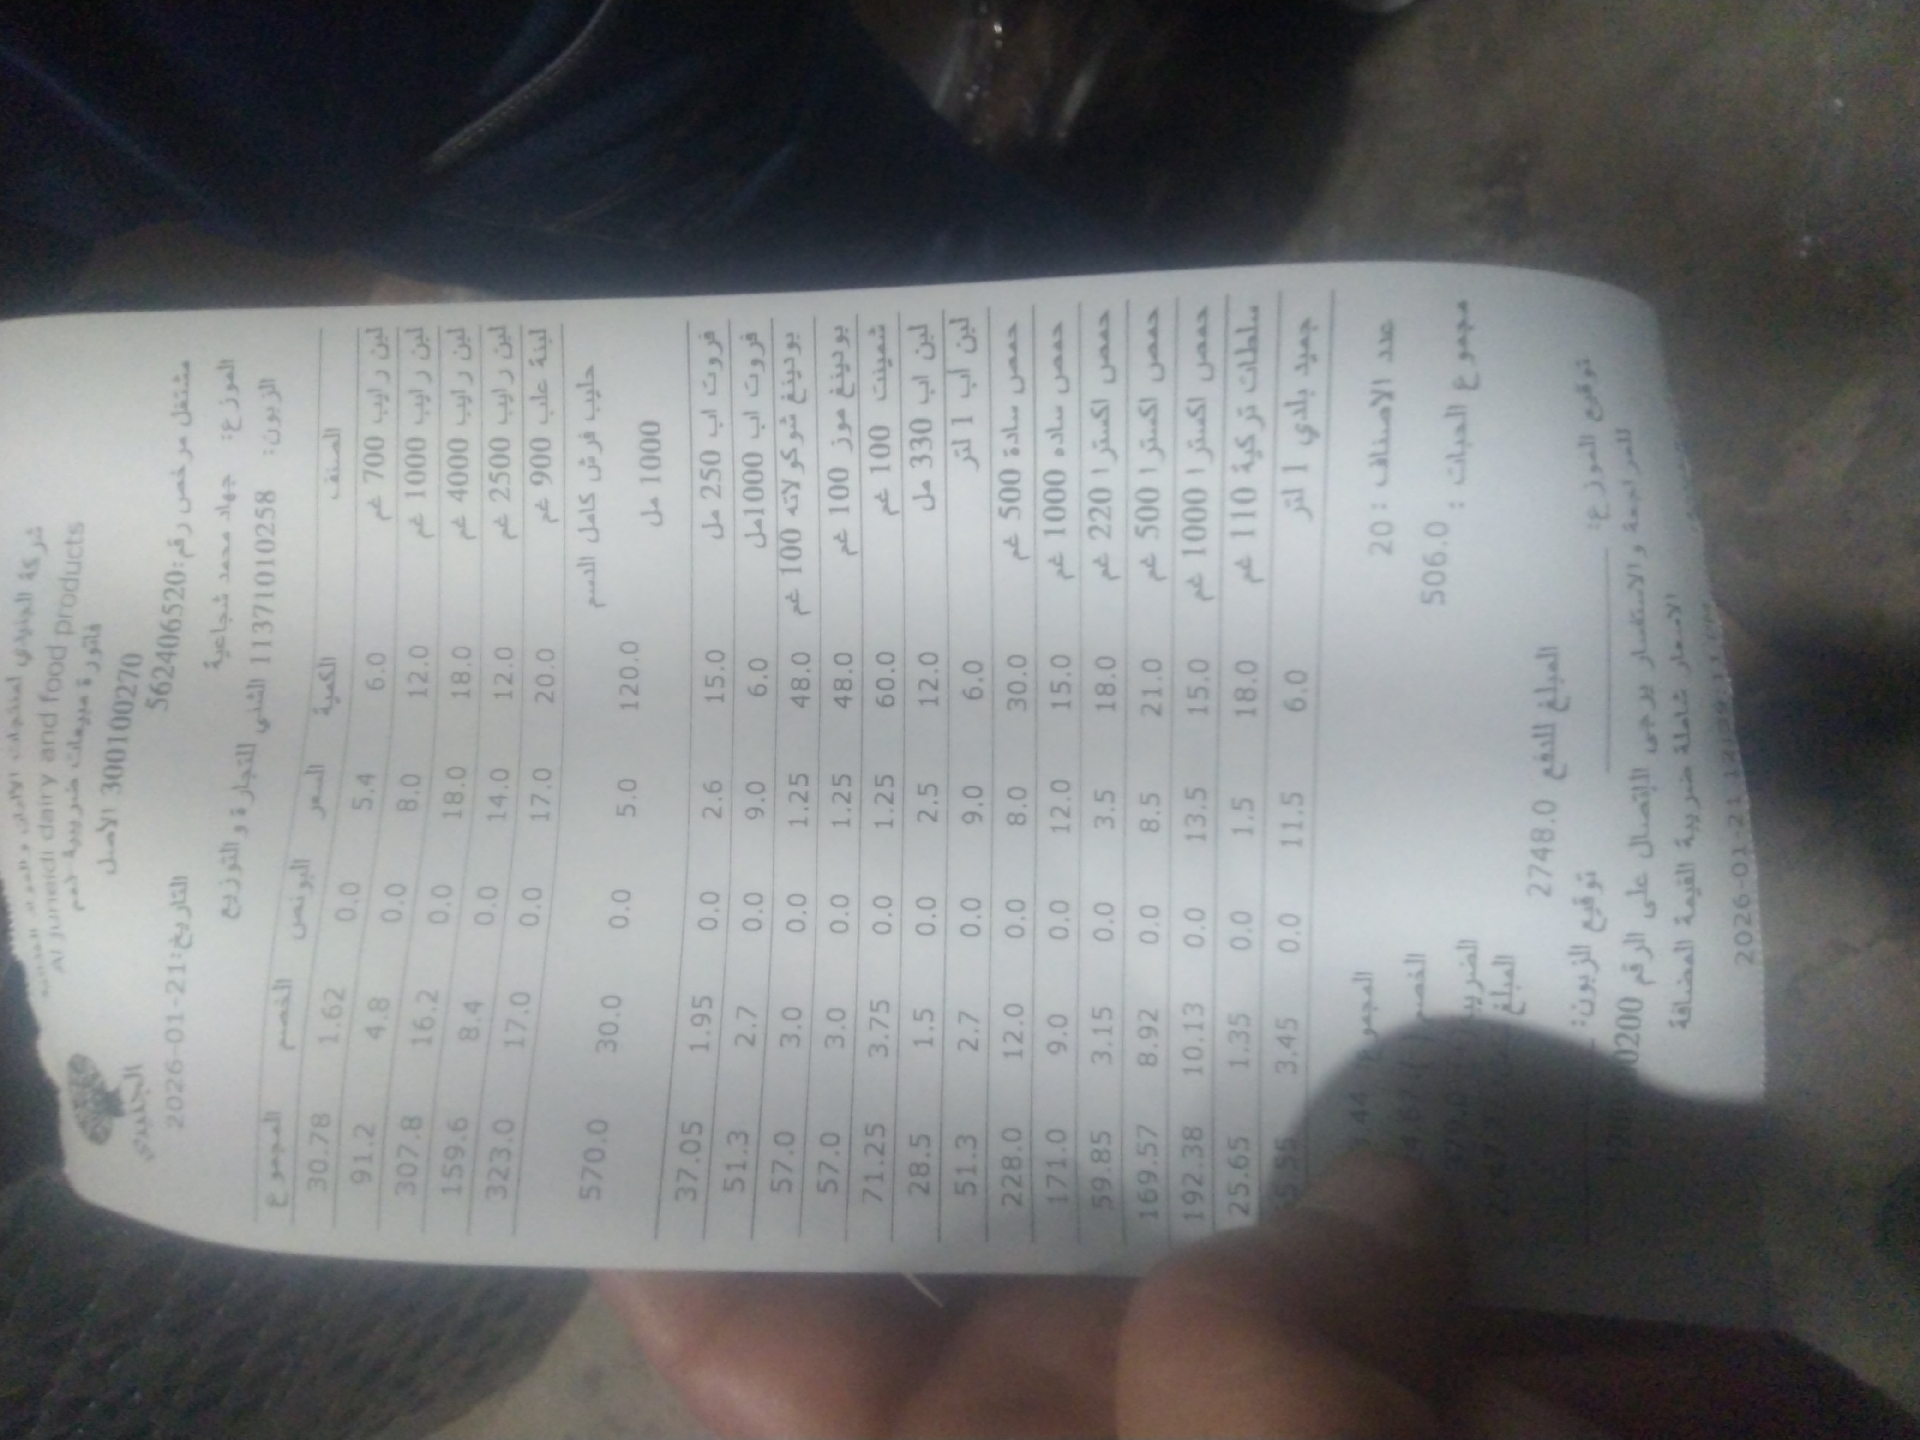 شركة الجنيدي لمنتجات الالبان و المواد الغذائية
Al Juneidi dairy and food products
فاتورة مبيعات ضريبية
300100270 الاصل
الجنيدي
مشتغل مرخص رقم:562406520
التاريخ:2026-01-21
الموزع: جهاد محمد شجاعية
الزبون: 11371010258 للتجارة و التوزيع
الصنف الكمية السعر البونص الخصم المجموع
لبن رايب 700 غم 6.0 5.4 0.0 1.62 30.78
لبن رايب 1000 غم 12.0 8.0 0.0 4.8 91.2
لبن رايب 4000 غم 18.0 18.0 0.0 16.2 307.8
لبن رايب 2500 غم 12.0 14.0 0.0 8.4 159.6
لبنة علب 900 غم 20.0 17.0 0.0 17.0 323.0
حليب فرش كامل الدسم
1000 مل 120.0 5.0 0.0 30.0 570.0
فروت اب 250 مل 15.0 2.6 0.0 1.95 37.05
فروت اب 1000مل 6.0 9.0 0.0 2.7 51.3
بودينغ شوكولاته 100 غم 48.0 1.25 0.0 3.0 57.0
بودينغ موز 100 غم 48.0 1.25 0.0 3.0 57.0
شمينت 100 غم 60.0 1.25 0.0 3.75 71.25
لبن اب 330 مل 12.0 2.5 0.0 1.5 28.5
لبن اب 1 لتر 6.0 9.0 0.0 2.7 51.3
حمص سادة 500 غم 30.0 8.0 0.0 12.0 228.0
حمص ساده 1000 غم 15.0 12.0 0.0 9.0 171.0
حمص اكسترا 220 غم 18.0 3.5 0.0 3.15 59.85
حمص اكسترا 500 غم 21.0 8.5 0.0 8.92 169.57
حمص اكسترا 1000 غم 15.0 13.5 0.0 10.13 192.38
سلطات تركية 110 غم 18.0 1.5 0.0 1.35 25.65
جميد بلدي 1 لتر 6.0 11.5 0.0 3.45
عدد الاصناف : 20 المجموع
مجموع الحبات : 506.0 الخصم
الضريبة
المبلغ
المبلغ للدفع 2748.0
توقيع الموزع: توقيع الزبون:
للمراجعة و الاستفسار يرجى الاتصال على الرقم
الاسعار شاملة ضريبة القيمة المضافة
2026-01-21